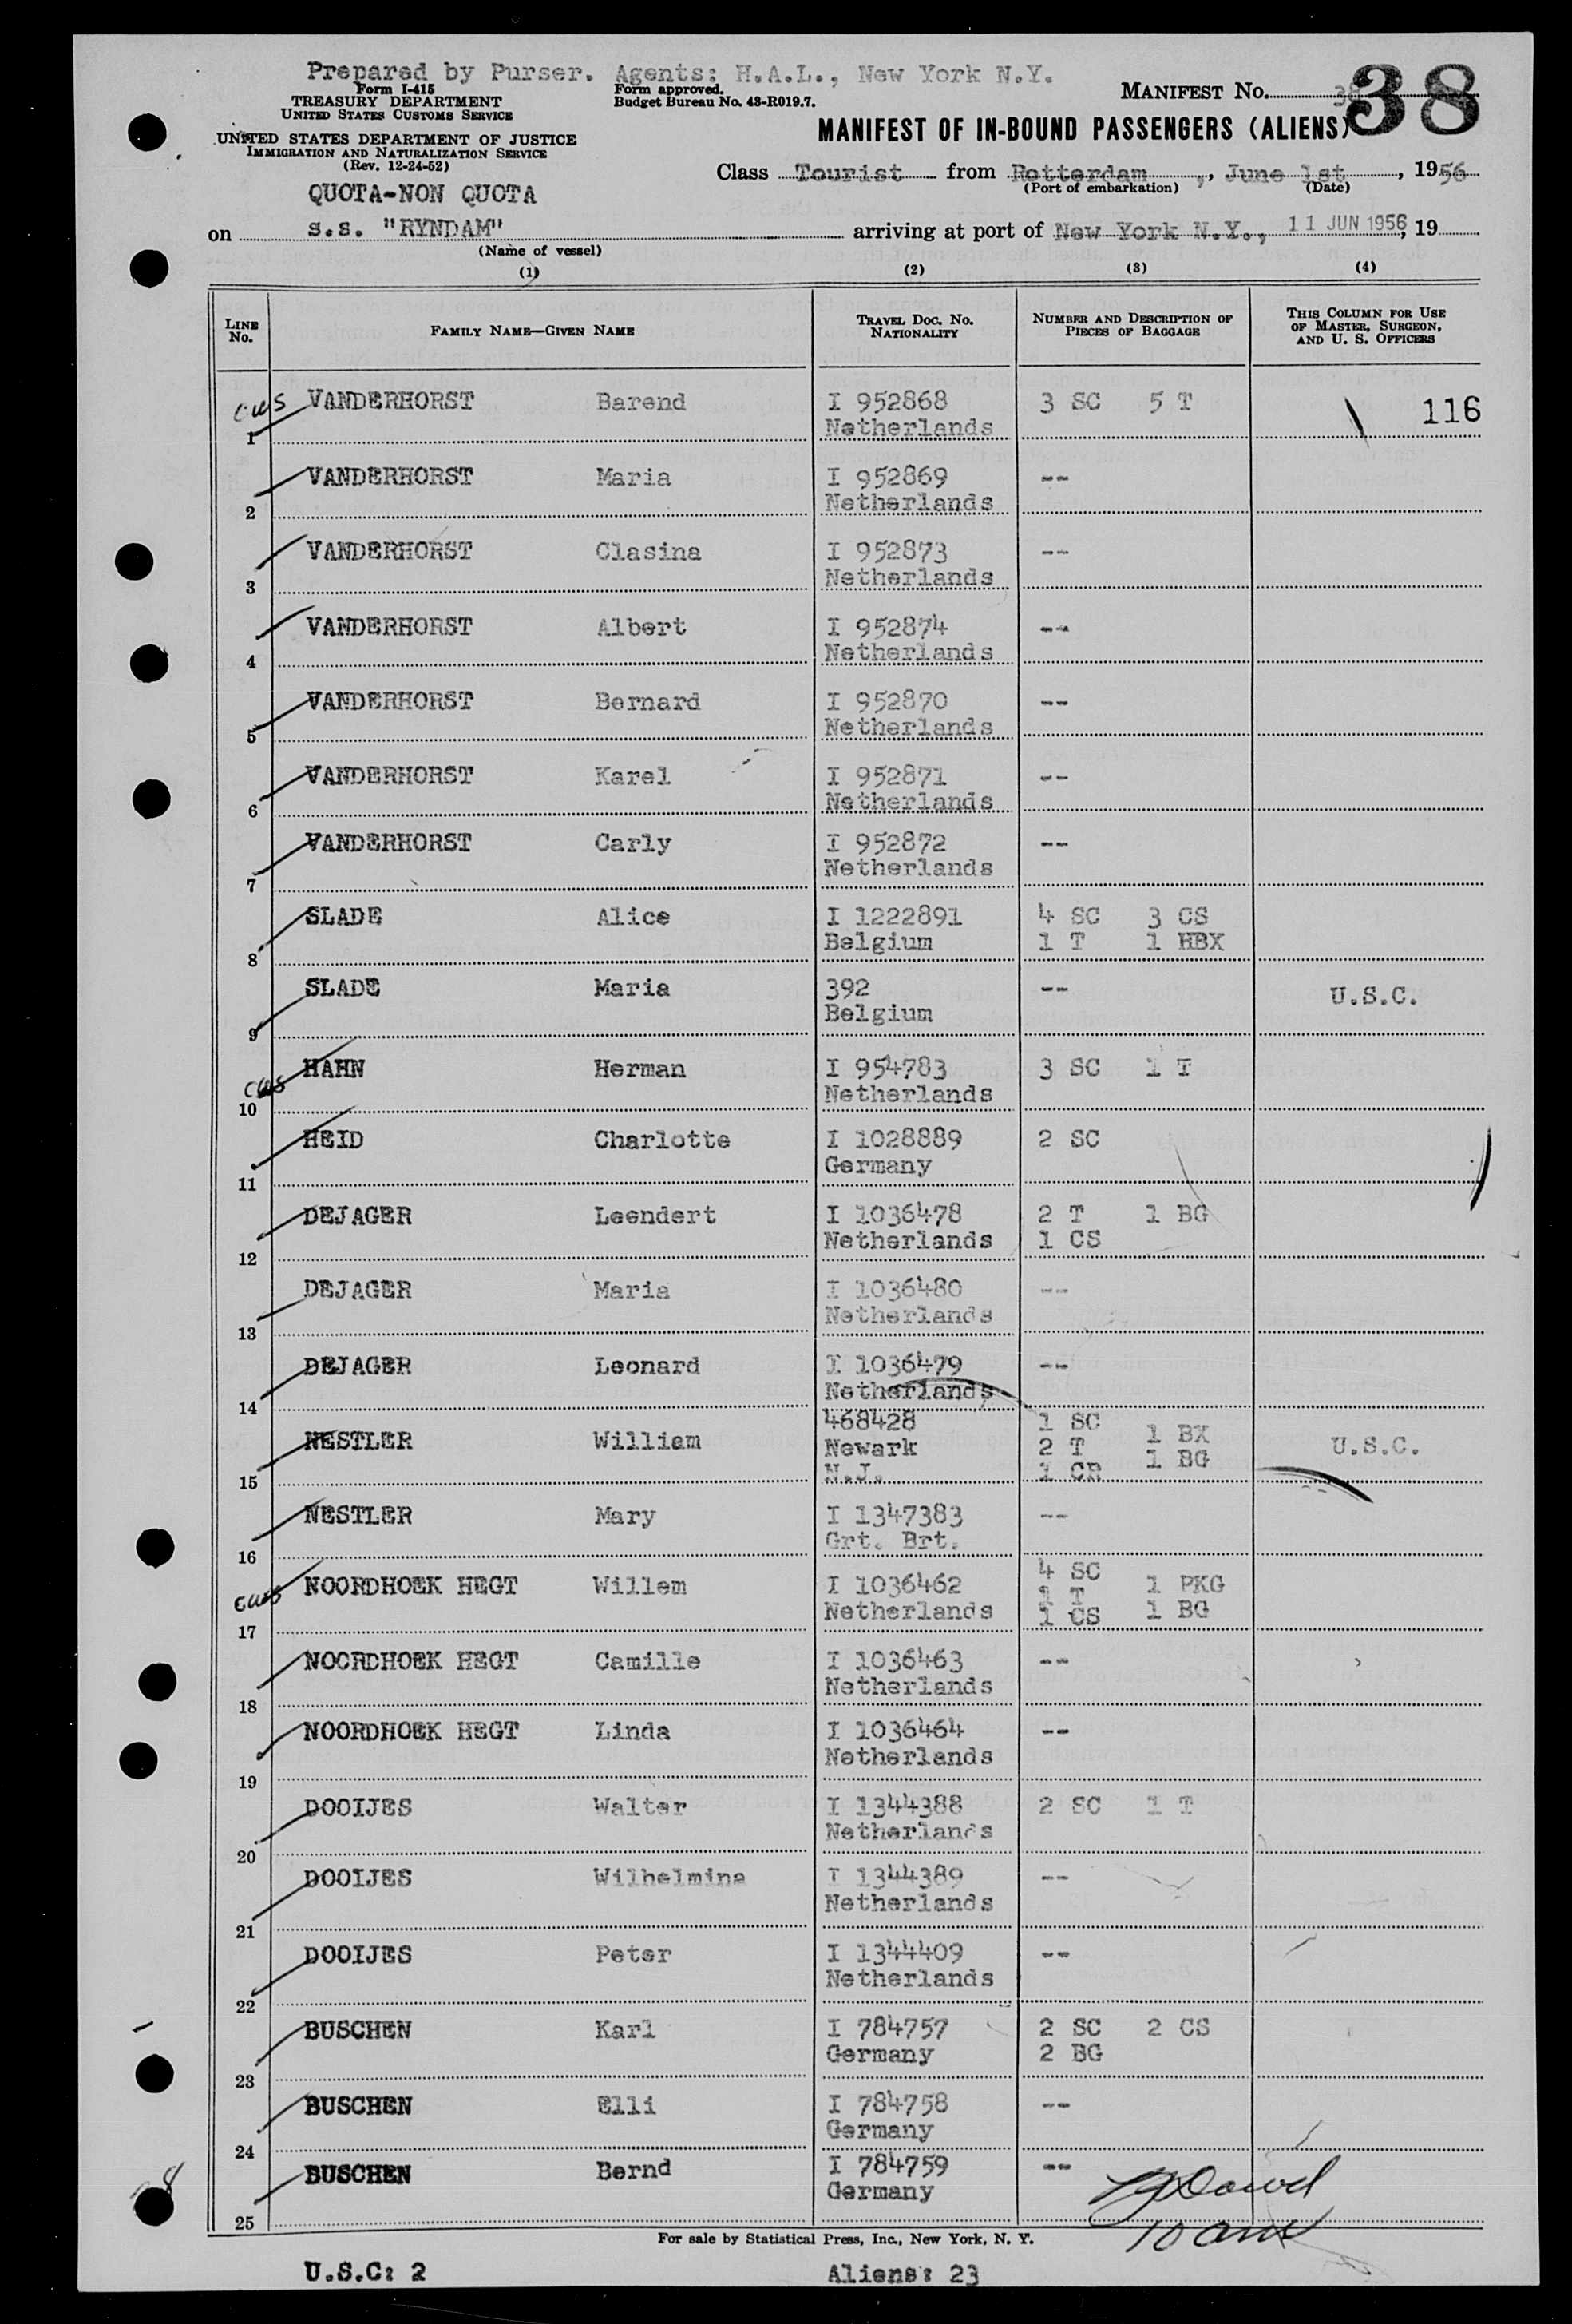 Prepared by Purser. Agents: H.A.L., New York N.Y.
Form I-415
TREASURY DEPARTMENT
UNITED STATES CUSTOMS SERVICE
Form approved.
Budget Bureau No. 43-R019.7.
MANIFEST No. 38
38
UNITED STATES DEPARTMENT OF JUSTICE
IMMIGRATION AND NATURALIZATION SERVICE
(Rev. 12-24-52)
MANIFEST OF IN-BOUND PASSENGERS (ALIENS)
Class Tourist from Rotterdam, June 1st, 1956
(Port of embarkation) (Date)
QUOTA-NON QUOTA
on s.s. "RYNDAM" arriving at port of New York N.Y., 11 JUN 1956, 19
(Name of vessel)
(1) (2) (3) (4)
LINE No. FAMILY NAME—GIVEN NAME TRAVEL DOC. No. NATIONALITY NUMBER AND DESCRIPTION OF PIECES OF BAGGAGE THIS COLUMN FOR USE OF MASTER, SURGEON, AND U. S. OFFICERS
VANDERHORST Barend I 952868 3 SC 5 T 116
1 Netherlands
VANDERHORST Maria I 952869 --
2 Netherlands
VANDERHORST Clasina I 952873 --
3 Netherlands
VANDERHORST Albert I 952874 --
4 Netherlands
VANDERHORST Bernard I 952870 --
5 Netherlands
VANDERHORST Karel I 952871 --
6 Netherlands
VANDERHORST Carly I 952872 --
7 Netherlands
SLADE Alice I 1222891 4 SC 3 CS
8 Belgium 1 T 1 HBX
SLADE Maria 392 -- U.S.C.
9 Belgium
HAHN Herman I 954783 3 SC 1 T
10 Netherlands
HEID Charlotte I 1028889 2 SC
11 Germany
DEJAGER Leendert I 1036478 2 T 1 BG
12 Netherlands 1 CS
DEJAGER Maria I 1036480 --
13 Netherlands
DEJAGER Leonard I 1036479 --
14 Netherlands
468428 1 SC 1 BX
NESTLER William Newark 2 T 1 BG U.S.C.
15 N.J. 1 CR
NESTLER Mary I 1347383 --
16 Grt. Brt.
4 SC
NOORDHOEK HEGT Willem I 1036462 1 T 1 PKG
17 Netherlands 1 CS 1 BG
NOORDHOEK HEGT Camille I 1036463 --
18 Netherlands
NOORDHOEK HEGT Linda I 1036464 --
19 Netherlands
DOOIJES Walter I 1344388 2 SC 1 T
20 Netherlands
DOOIJES Wilhelmina I 1344389 --
21 Netherlands
DOOIJES Peter I 1344409 --
22 Netherlands
BUSCHEN Karl I 784757 2 SC 2 CS
23 Germany 2 BG
BUSCHEN Elli I 784758 --
24 Germany
BUSCHEN Bernd I 784759 --
25 Germany
For sale by Statistical Press, Inc., New York, N. Y.
U.S.C: 2 Aliens: 23